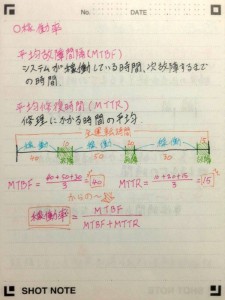 No.
DATE
○稼働率
平均故障間隔(MTBF)
システムが稼働している時間、次故障するまで
の時間.
平均修復時間(MTTR)
修理にかかる時間の平均.
運転時間
稼働 稼働 稼働
40 50 30
MTBF = 40+50+30/3 = 40 MTTR = 15
稼働率 = MTBF/MTBF+MTTR
SHOT NOTE
SHOT NOTE